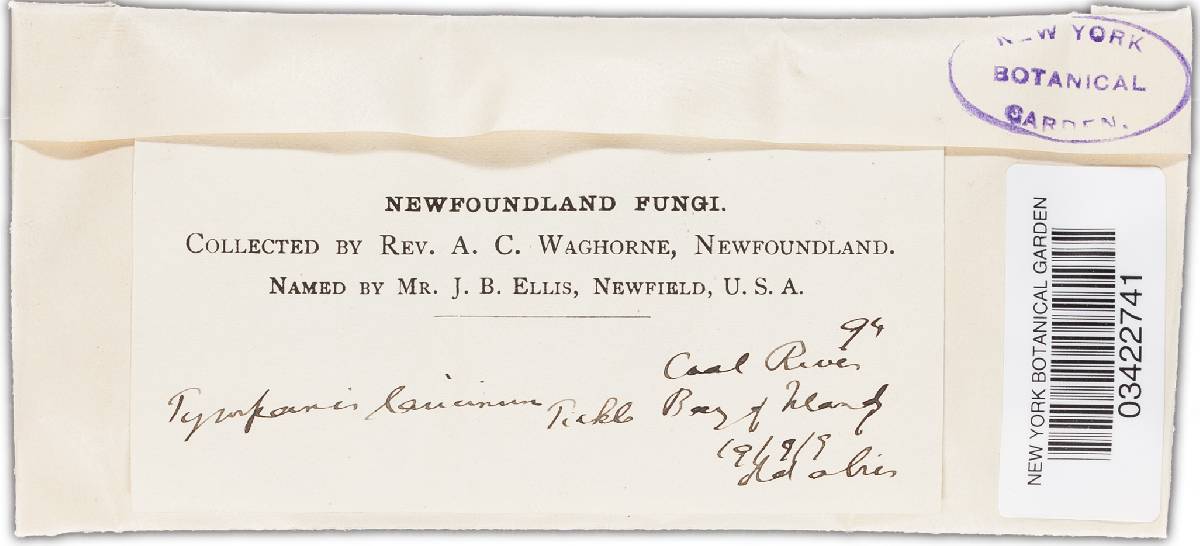 NEW YORK
BOTANICAL
GARDEN.
NEWFOUNDLAND FUNGI.
COLLECTED BY REV. A. C. WAGHORNE, NEWFOUNDLAND.
NAMED BY MR. J. B. ELLIS, NEWFIELD, U. S. A.
Coal River
Tympanis laricinum Tickle Bay of Islands
abies
NEW YORK BOTANICAL GARDEN
03422741